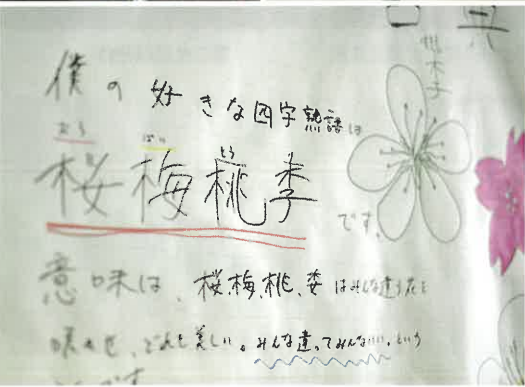 僕の好きな四字熟語は
おう ばい とう
桜梅桃李
です。
意味は、桜、梅、桃、李はみんな違う花を
咲かせ、どれも美しい。みんな違ってみんないい。という